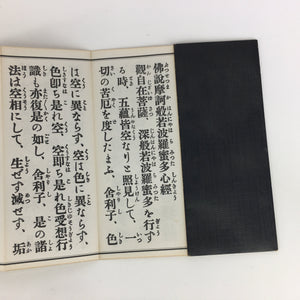 佛說摩訶般若波羅蜜多心經
觀自在菩薩、深般若波羅蜜多を行ず
る時、五蘊皆空なりと照見して、一
切の苦厄を度したまふ。舍利子、色
は空に異ならず、空は色に異ならず、
色卽ち是れ空、空卽ち是れ色、受想行
識も亦復是の如し。舍利子、是の諸
法は空相にして、生ぜず滅せず、垢